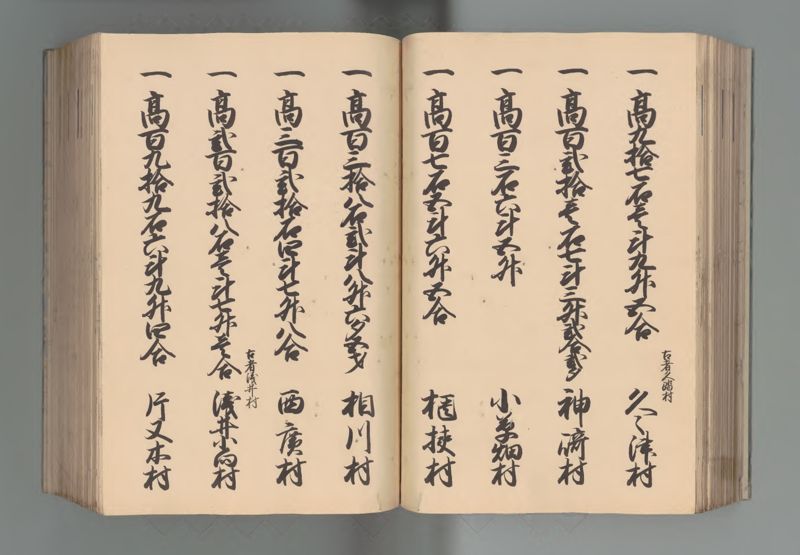 一 高九拾七石壱斗九升五合 久々津村
一 高百弐拾壱石七斗三升弐合弐夕 神崎村
一 高百三石六斗五升 小草畑村
一 高百七石五斗六升五合 櫃挾村
一 高百三拾八石弐斗八升六夕五才 相川村
一 高三百弐拾石四斗七升八合 西廣村
古者浅井村
一 高弐百弐拾八石壱斗七升壱合 浅井小向村
一 高百九拾九石六斗九升四合 片又木村